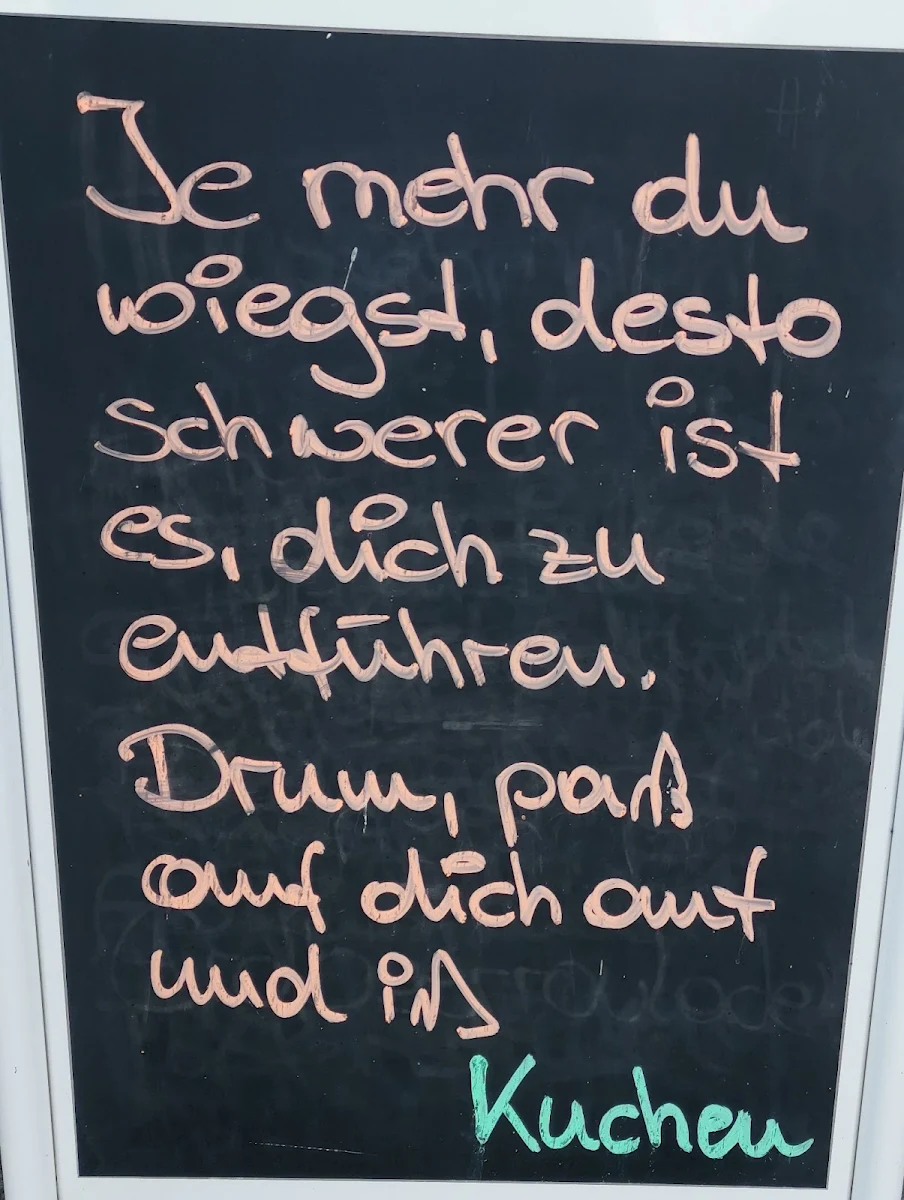 Je mehr du
wiegst, desto
schwerer ist
es, dich zu
entführen.
Drum, paß
auf dich auf
und iß
Kuchen